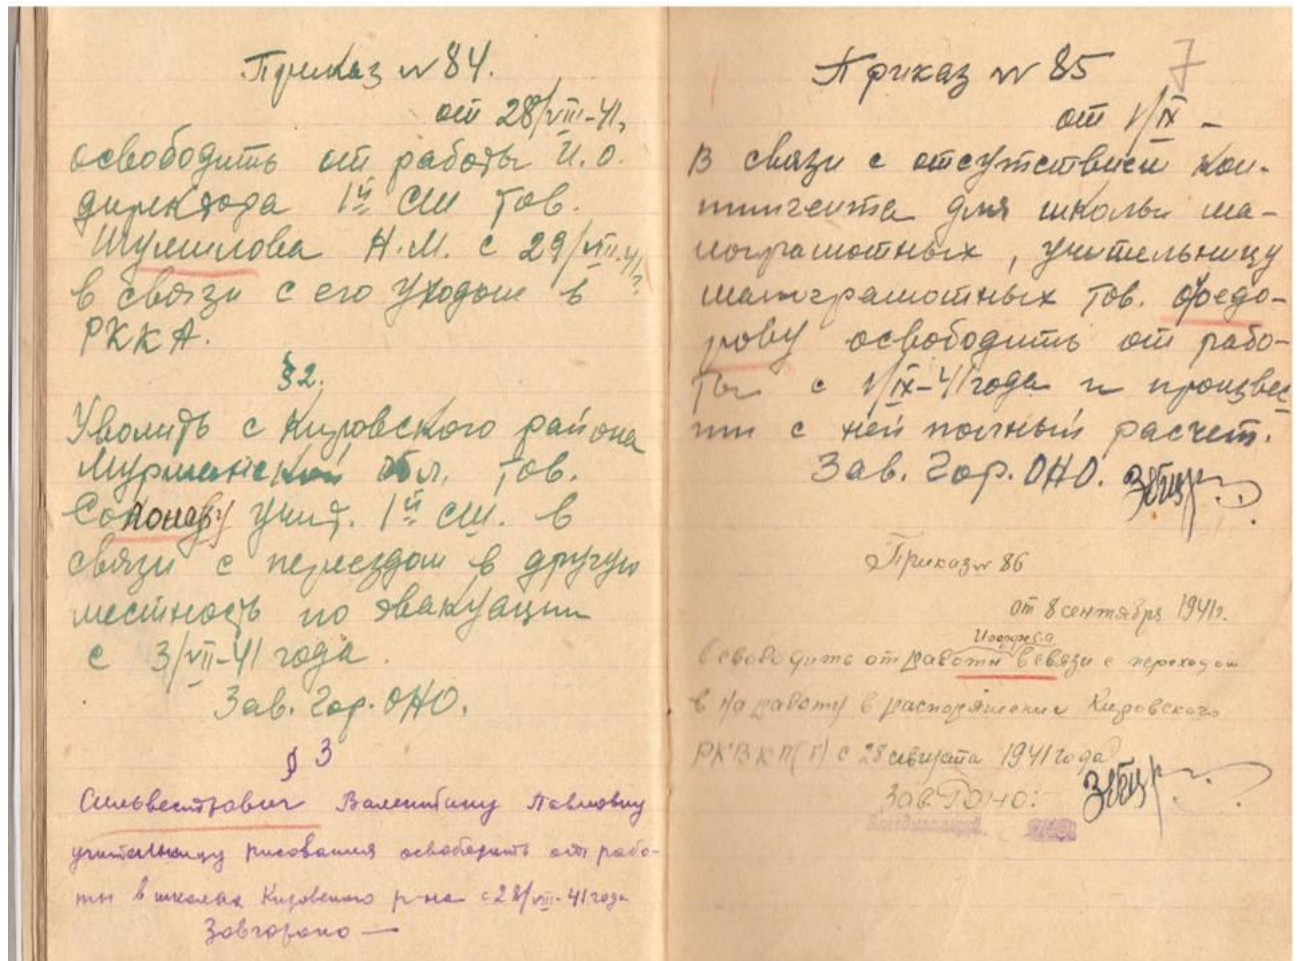 Приказ № 84.
от 28/VIII-41г.
освободить от работы И.О.
директора 1й СШ тов.
Шумилова Н.М. с 29/VIII-41г.
в связи с его уходом в
РККА.
§2.
Уволить с Кировского района
Мурманской обл. тов.
учит. 1й СШ. в
связи с переездом в другую
местность по эвакуации
с 3/VII-41 года.
Зав. Гор. ОНО.
§ 3
Сильвестрович Валентину Павловну
учительницу рисования освободить от рабо-
ты в школах Кировского р-на с 28/VIII-41 года
Завгороно —
7
Приказ № 85
от 1/IX -
В связи с отсутствием кон-
тингента для школы ма-
лограмотных, учительницу
малограмотных тов. Федо-
рову освободить от рабо-
ты с 1/IX-41 года и произвес
ти с ней полный расчет.
Зав. Гор. ОНО.
Приказ № 86
от 8 сентября 1941г.
освободить от работы в связи с переходом
в на работу в распоряжении Кировского
РК ВКП(б) с 28 августа 1941 года
Зав. ГОНО: